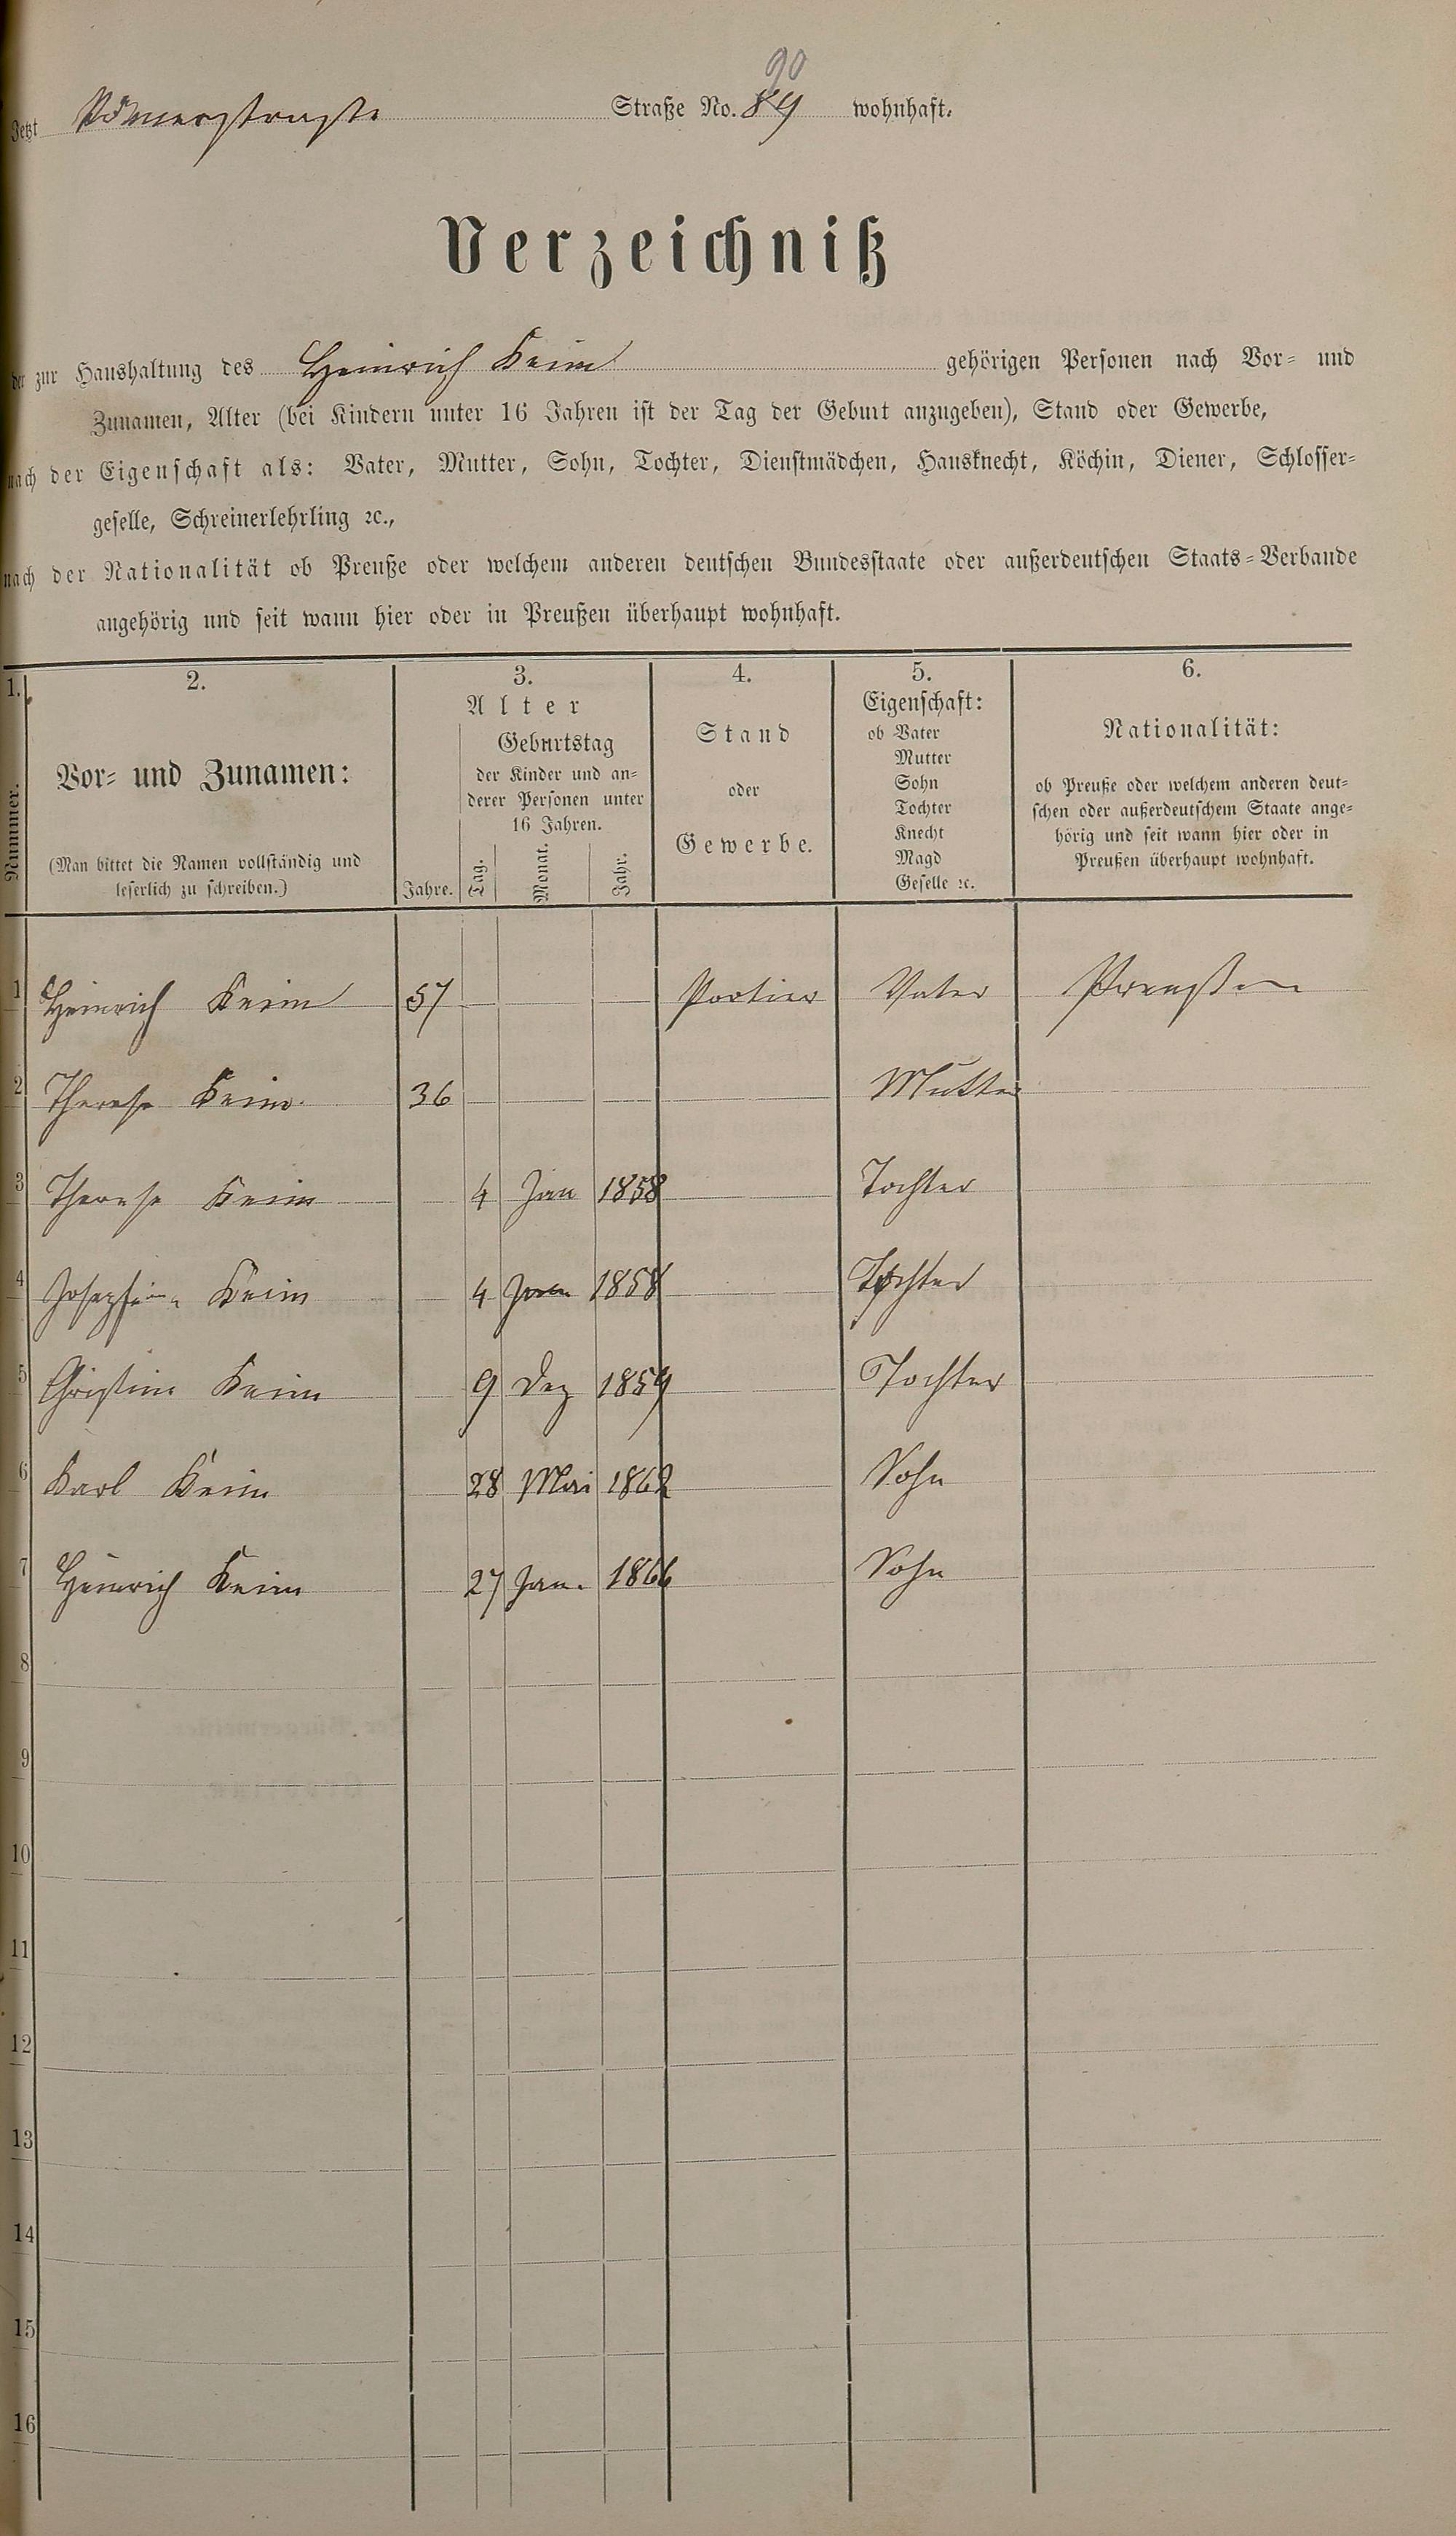 90
Jetzt Römerstraße Straße No. 89 wohnhaft.
Verzeichniß
der zur Haushaltung des Heinrich Keim gehörigen Personen nach Vor- und
Zunamen, Alter (bei Kindern unter 16 Jahren ist der Tag der Geburt anzugeben), Stand oder Gewerbe,
nach der Eigenschaft als: Vater, Mutter, Sohn, Tochter, Dienstmädchen, Hausknecht, Köchin, Diener, Schlosser-
geselle, Schreinerlehrling ꝛc.,
nach der Nationalität ob Preuße oder welchem anderen deutschen Bundesstaate oder außerdeutschen Staats-Verbande
angehörig und seit wann hier oder in Preußen überhaupt wohnhaft.
1. 2. 3. 4. 5. 6.
Nummer.
Vor- und Zunamen:
(Man bittet die Namen vollständig und
leserlich zu schreiben.)
Alter
Geburtstag
der Kinder und an-
derer Personen unter
16 Jahren.
Jahre. Tag. Monat. Jahr.
Stand
oder
Gewerbe.
Eigenschaft:
ob Vater
Mutter
Sohn
Tochter
Knecht
Magd
Geselle ꝛc.
Nationalität:
ob Preuße oder welchem anderen deut-
schen oder außerdeutschem Staate ange-
hörig und seit wann hier oder in
Preußen überhaupt wohnhaft.
1 Heinrich Keim 57 Portier Vater Preußen
2 Therese Keim 36 Mutter
3 Therese Keim 4 Jan 1858 Tochter
4 Josephine Keim 4 1858 Tochter
5 Christine Keim 9 Dez 1859 Tochter
6 Karl Keim 28 Mai 1862 Sohn
7 Heinrich Keim 27 Jan. 1866 Sohn
8
9
10
11
12
13
14
15
16